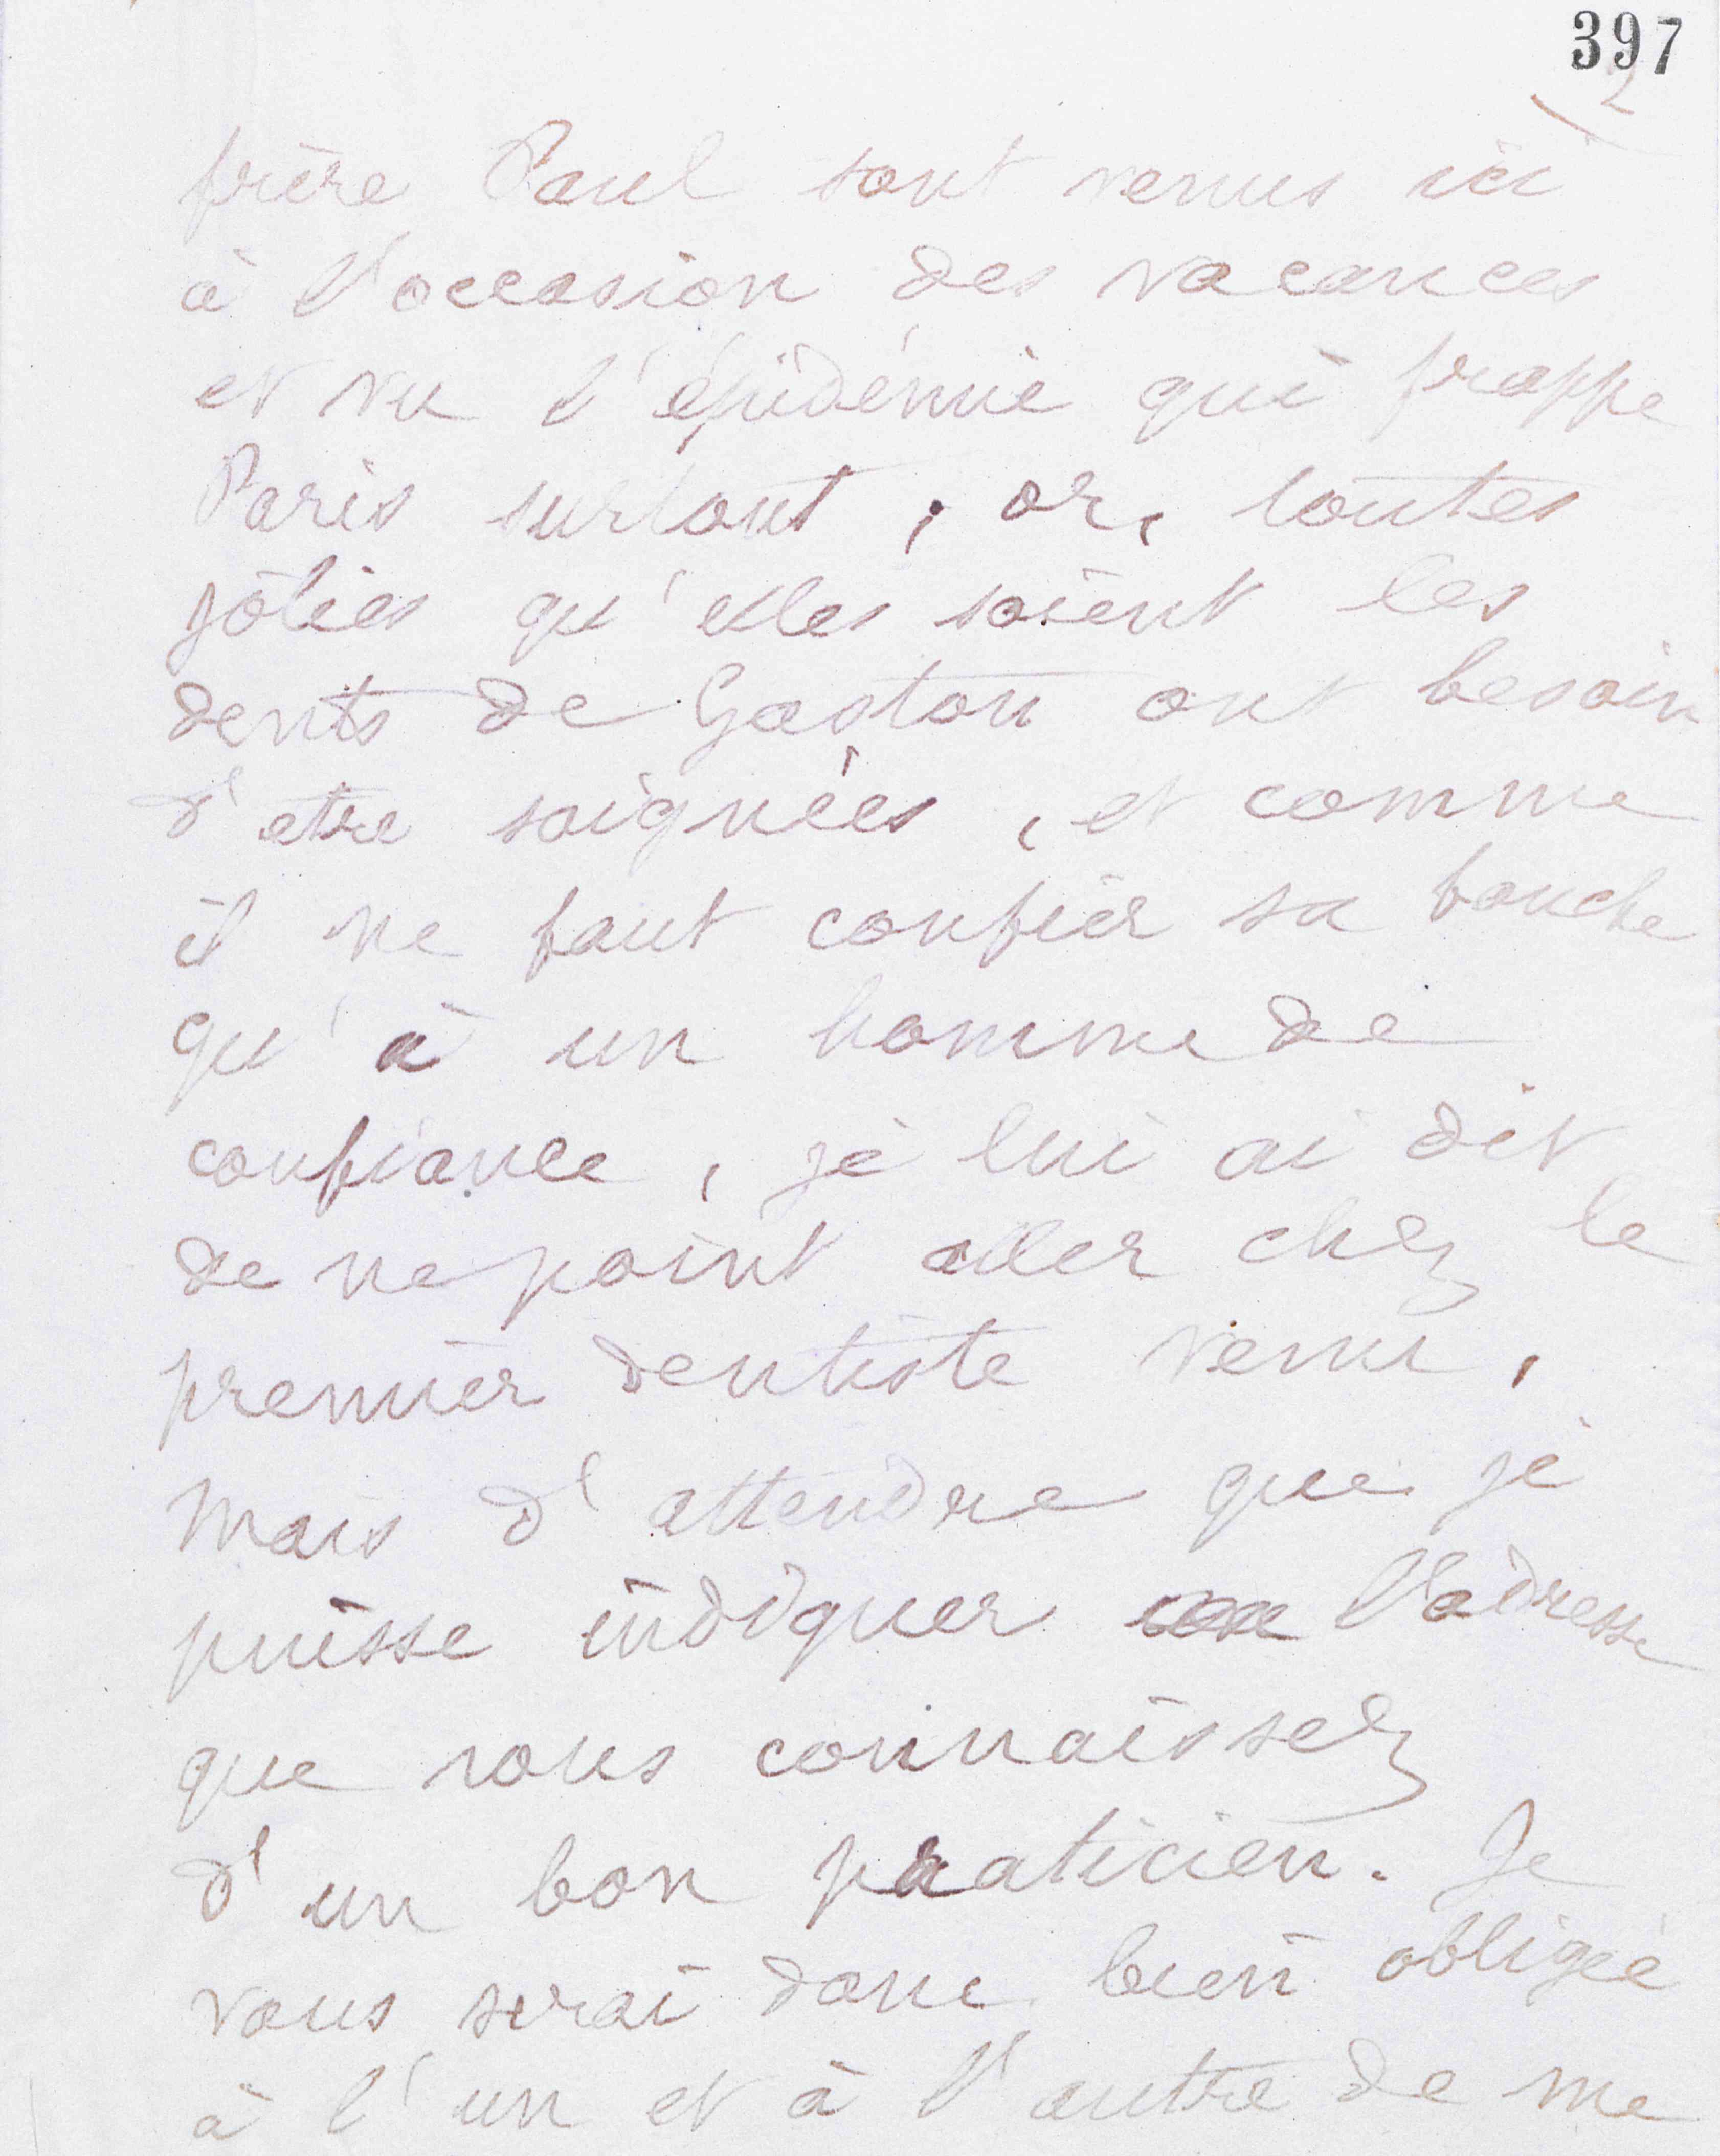 397
2
frère Paul sont venus ici
à l'occasion des vacances
et vu l'épidémie qui frappe
Paris surtout, or, toutes
jolies qu'elles soient les
dents de Gaston ont besoin
d'etre soignées, et comme
il ne faut confier sa bouche
qu'à un homme de
confiance, je lui ai dit
de ne point aller chez le
premier dentiste venu,
mais d'attendre que je
puisse indiquer l'adresse
que vous connaissez
d'un bon praticien. Je
vous serai donc bien obligée
à l'un et à l'autre de me